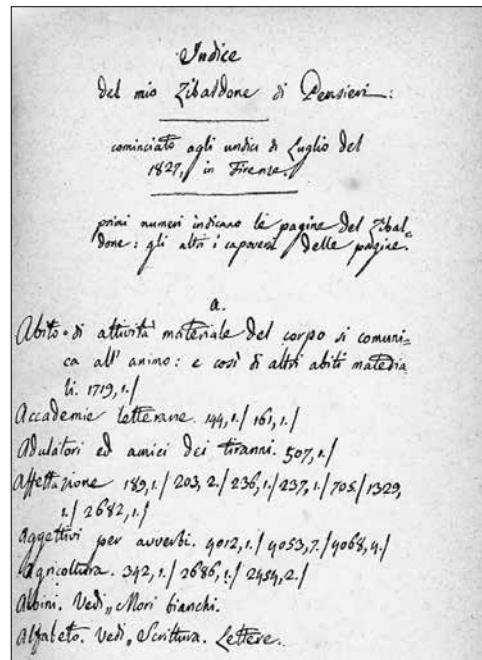 Indice
del mio Zibaldone di Pensieri:
cominciato agli undici di Luglio del
1827, in Firenze.
primi numeri indicano le pagine del Zibal=
done: gli altri i capoversi delle pagine.
a.
Abito di attività materiale del corpo si comuni=
ca all' animo: e così di altri abiti materia
li. 1719,1./
Accademie letterarie. 144,1./ 161,1./
Adulatori ed amici dei tiranni. 507,1./
Affettazione 189,1./ 203, 2./ 236,1./ 237,1./ 705./ 1329,
1./ 2682,1./
Aggettivi per avverbi. 4012,1./ 4053,7./ 4068,4./
Agricoltura. 342,1./ 2686,1./ 2454,2./
Albini. Vedi, Mori bianchi.
Alfabeto. Vedi, Scrittura. Lettere.